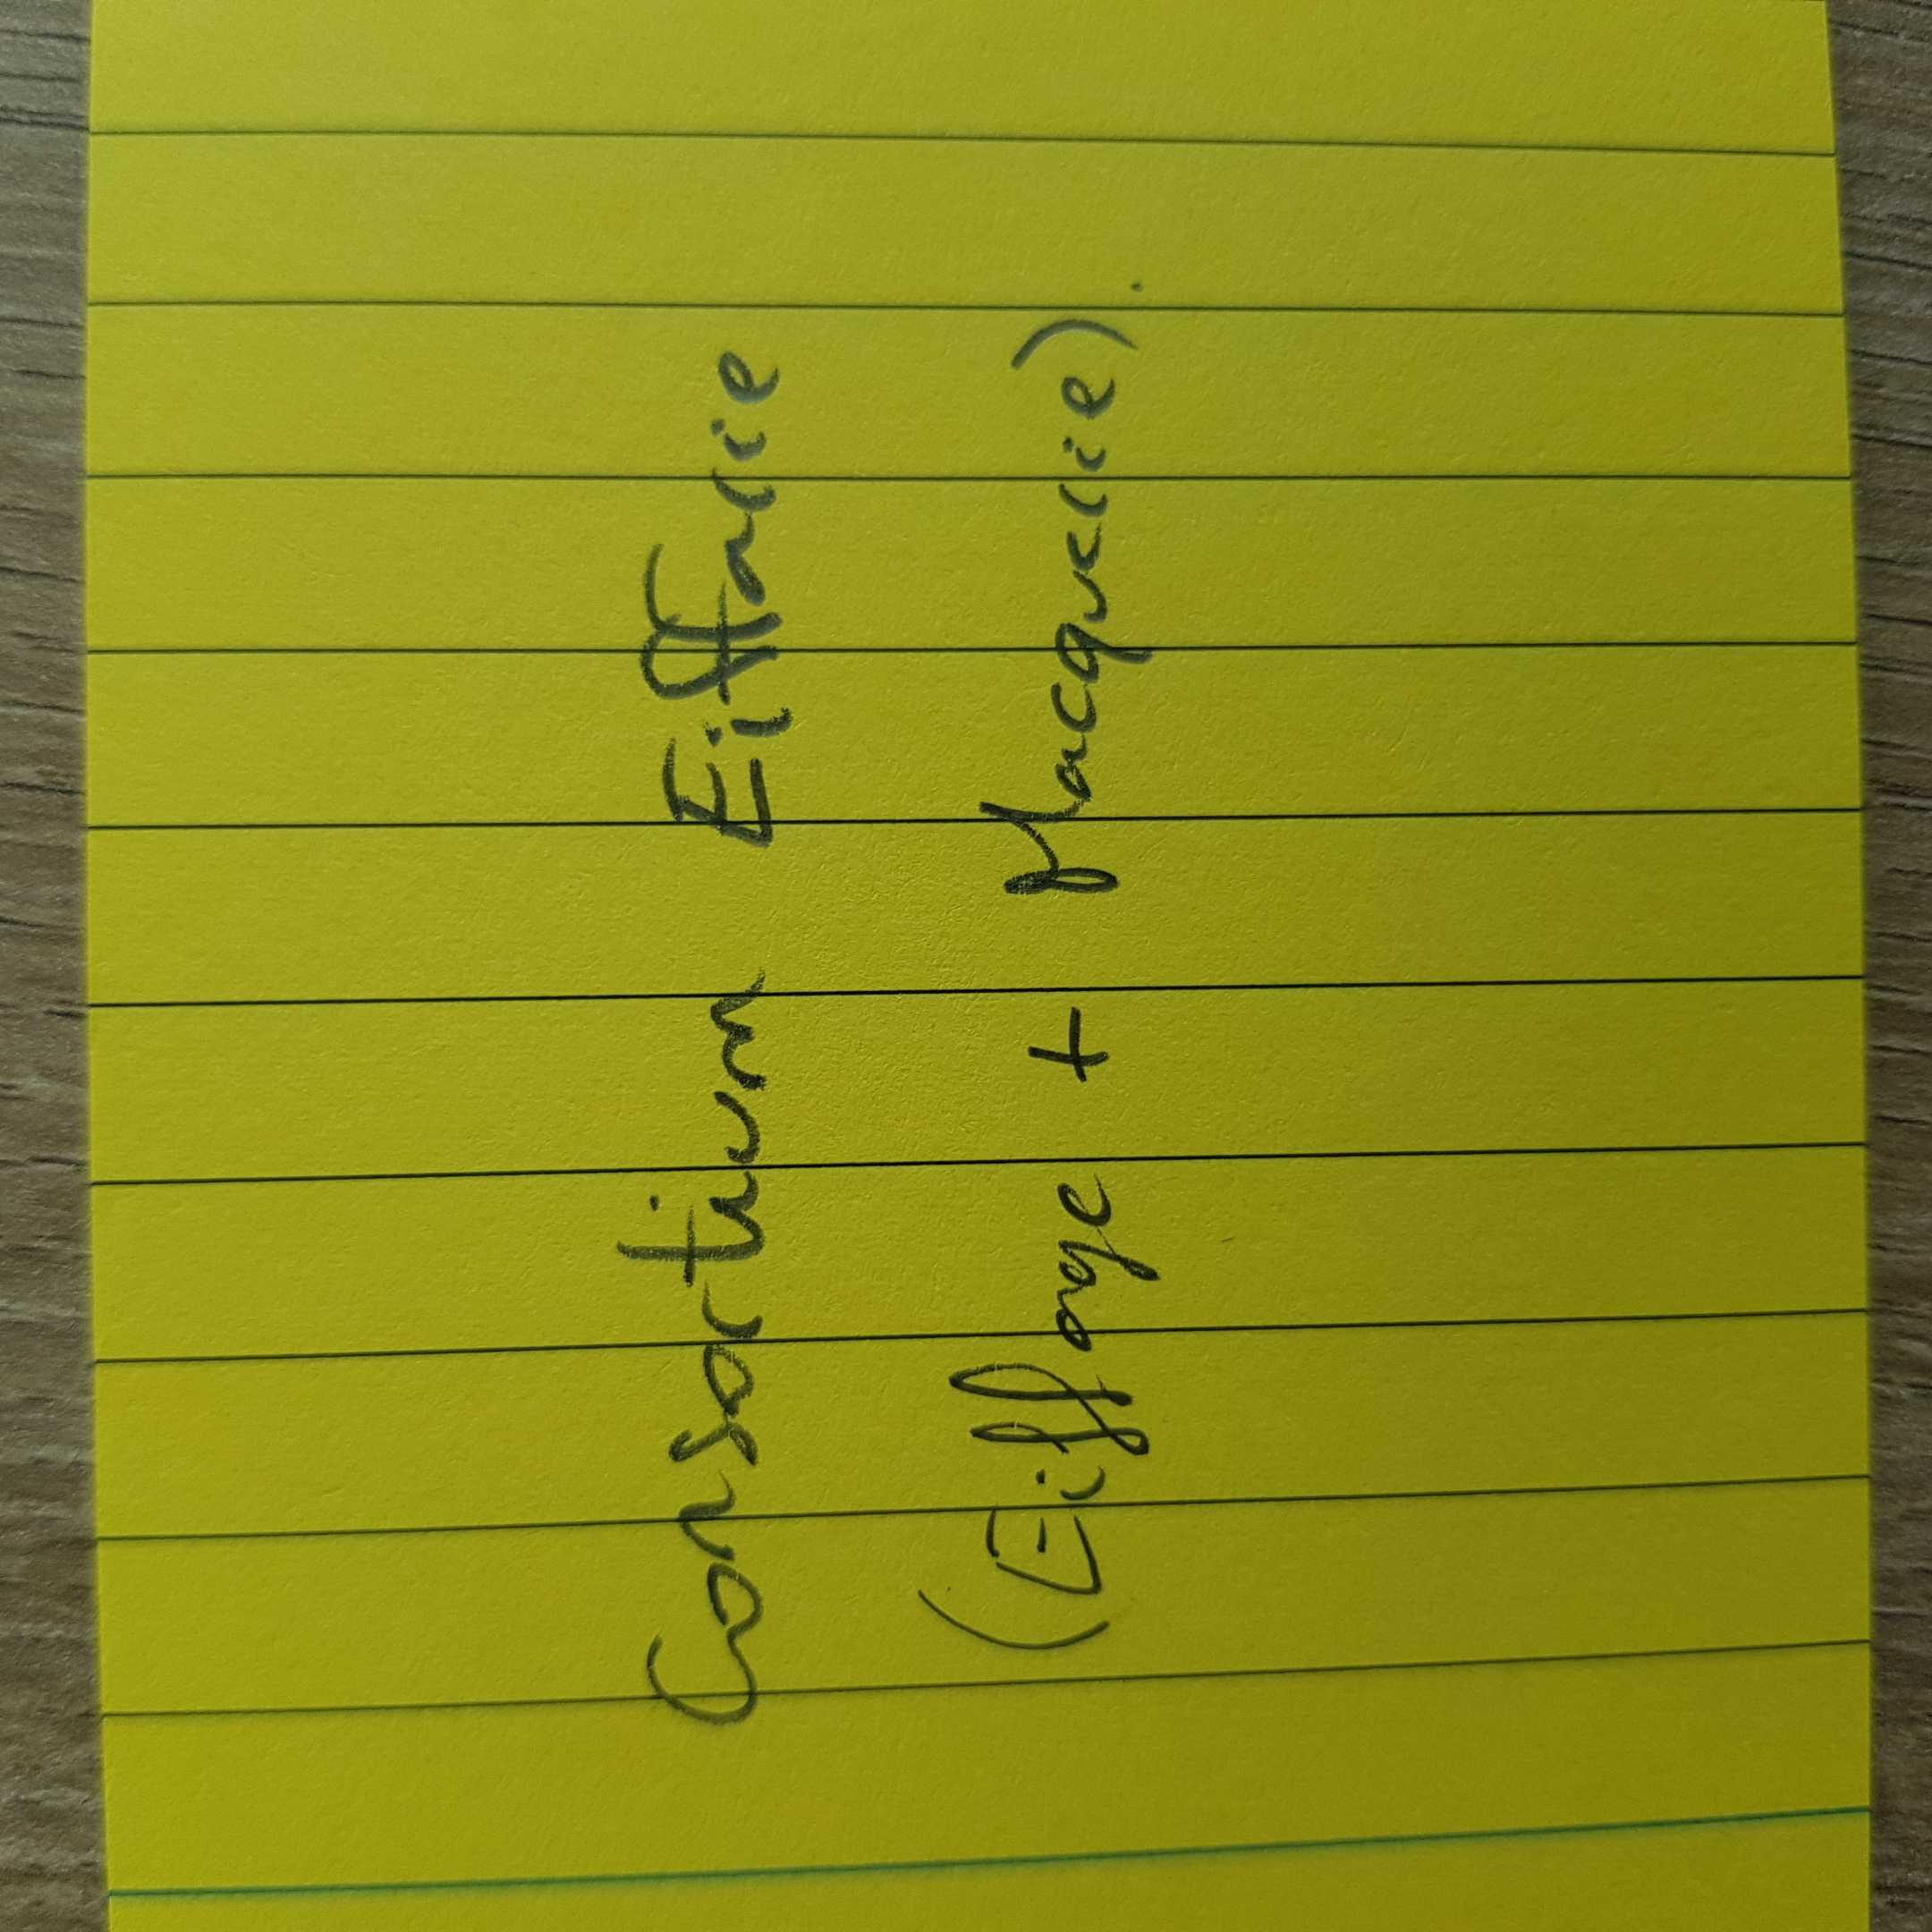 Consortium Eiffarie
(Eiffage + Macquarie).